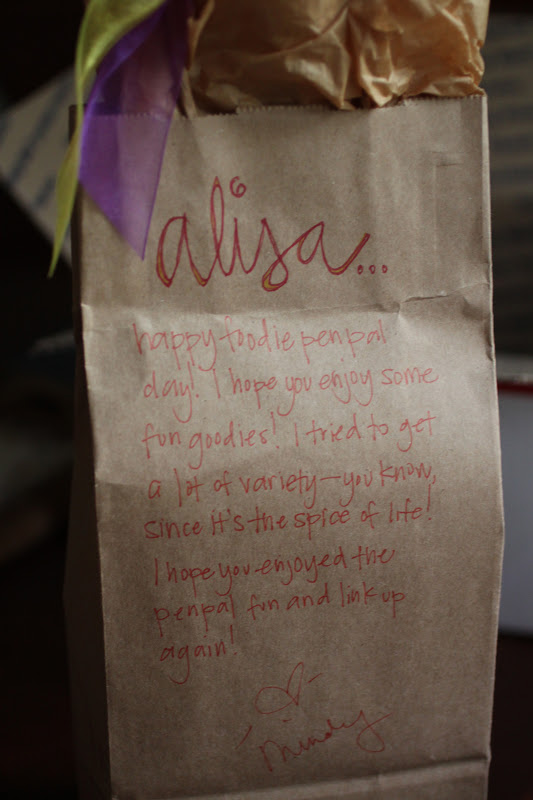 alisa...
happy foodie penpal
day! I hope you enjoy some
fun goodies! I tried to get
a lot of variety—you know,
since it's the spice of life!
I hope you enjoyed the
penpal fun and link up
again!
Mindy